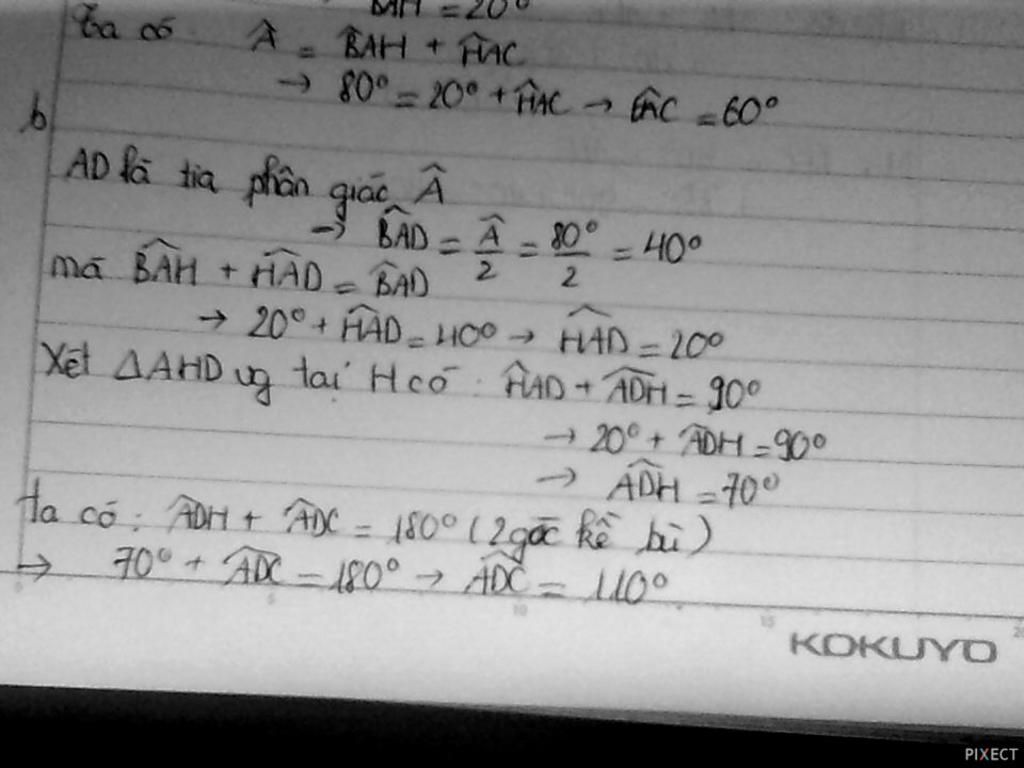 BAH = 20°
Ta có. Â = B̂AH + ĤAC
→ 80° = 20° + ĤAC → ĤAC = 60°
b
AD là tia phân giác Â
→ B̂AD = Â/2 = 80°/2 = 40°
mà B̂AH + ĤAD = B̂AD
→ 20° + ĤAD = 40° → ĤAD = 20°
Xét ΔAHD vg tại H có: ĤAD + ÂDH = 90°
→ 20° + ÂDH = 90°
→ ÂDH = 70°
Ta có: ÂDH + ÂDC = 180° (2 góc kề bù)
→ 70° + ÂDC = 180° → ÂDC = 110°
0 5 10 15 20
KOKUYO
PIXECT